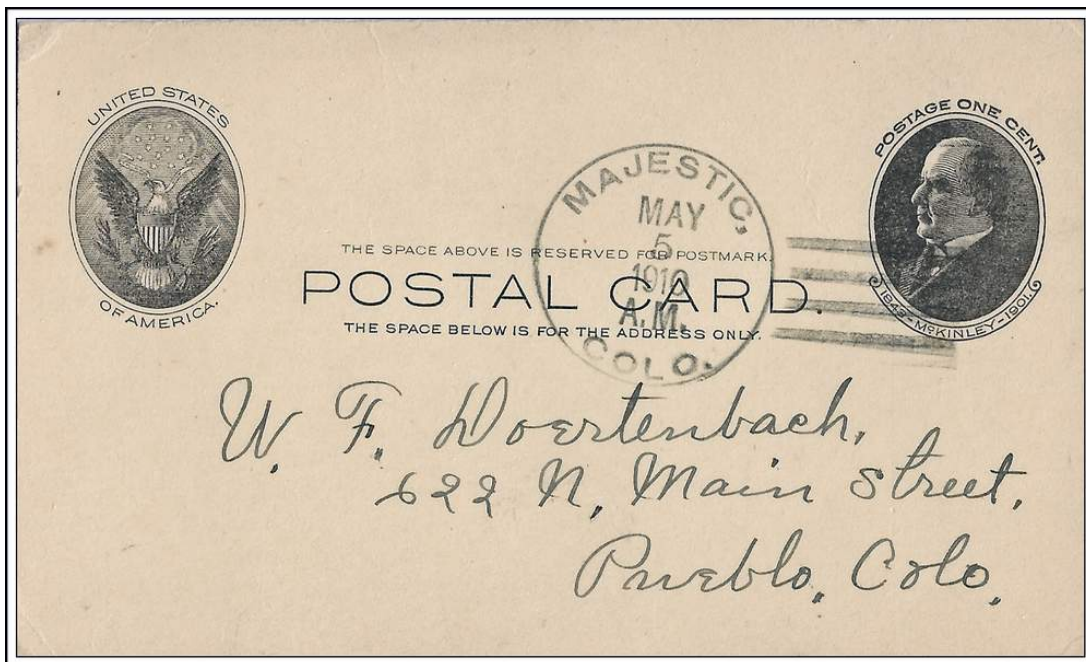 UNITED STATES
OF AMERICA.
POSTAGE ONE CENT.
1843-McKINLEY-1901.
MAJESTIC,
MAY
5
1910
A.M.
COLO.
THE SPACE ABOVE IS RESERVED FOR POSTMARK.
POSTAL CARD.
THE SPACE BELOW IS FOR THE ADDRESS ONLY.
W. F. Doertenbach,
622 N, Main Street,
Pueblo, Colo,